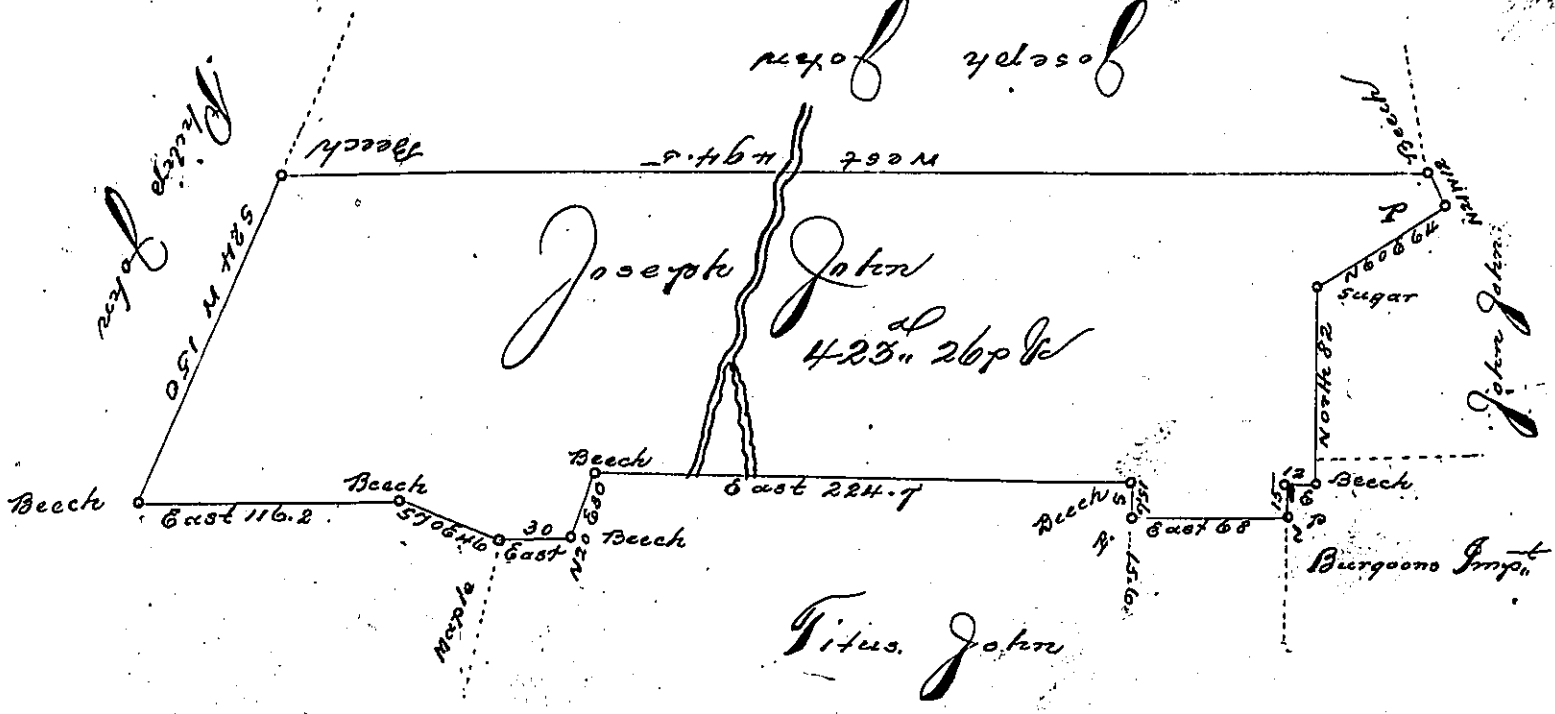 Joseph John
Philip John
Beech
West 494.5
Beech
N21W12
P
N60E64
Sugar
John John
S24W 150
Joseph John
423a,, 26p &c
North 82
Beech
East 116.2
Beech
East
30
N20E
Beech
Beech
East 224.7
Beech
S
15.6
P.
15.6
East 68
15
12
E
N
P
Beech
Burgoons Impt,,
Maple
Titus John